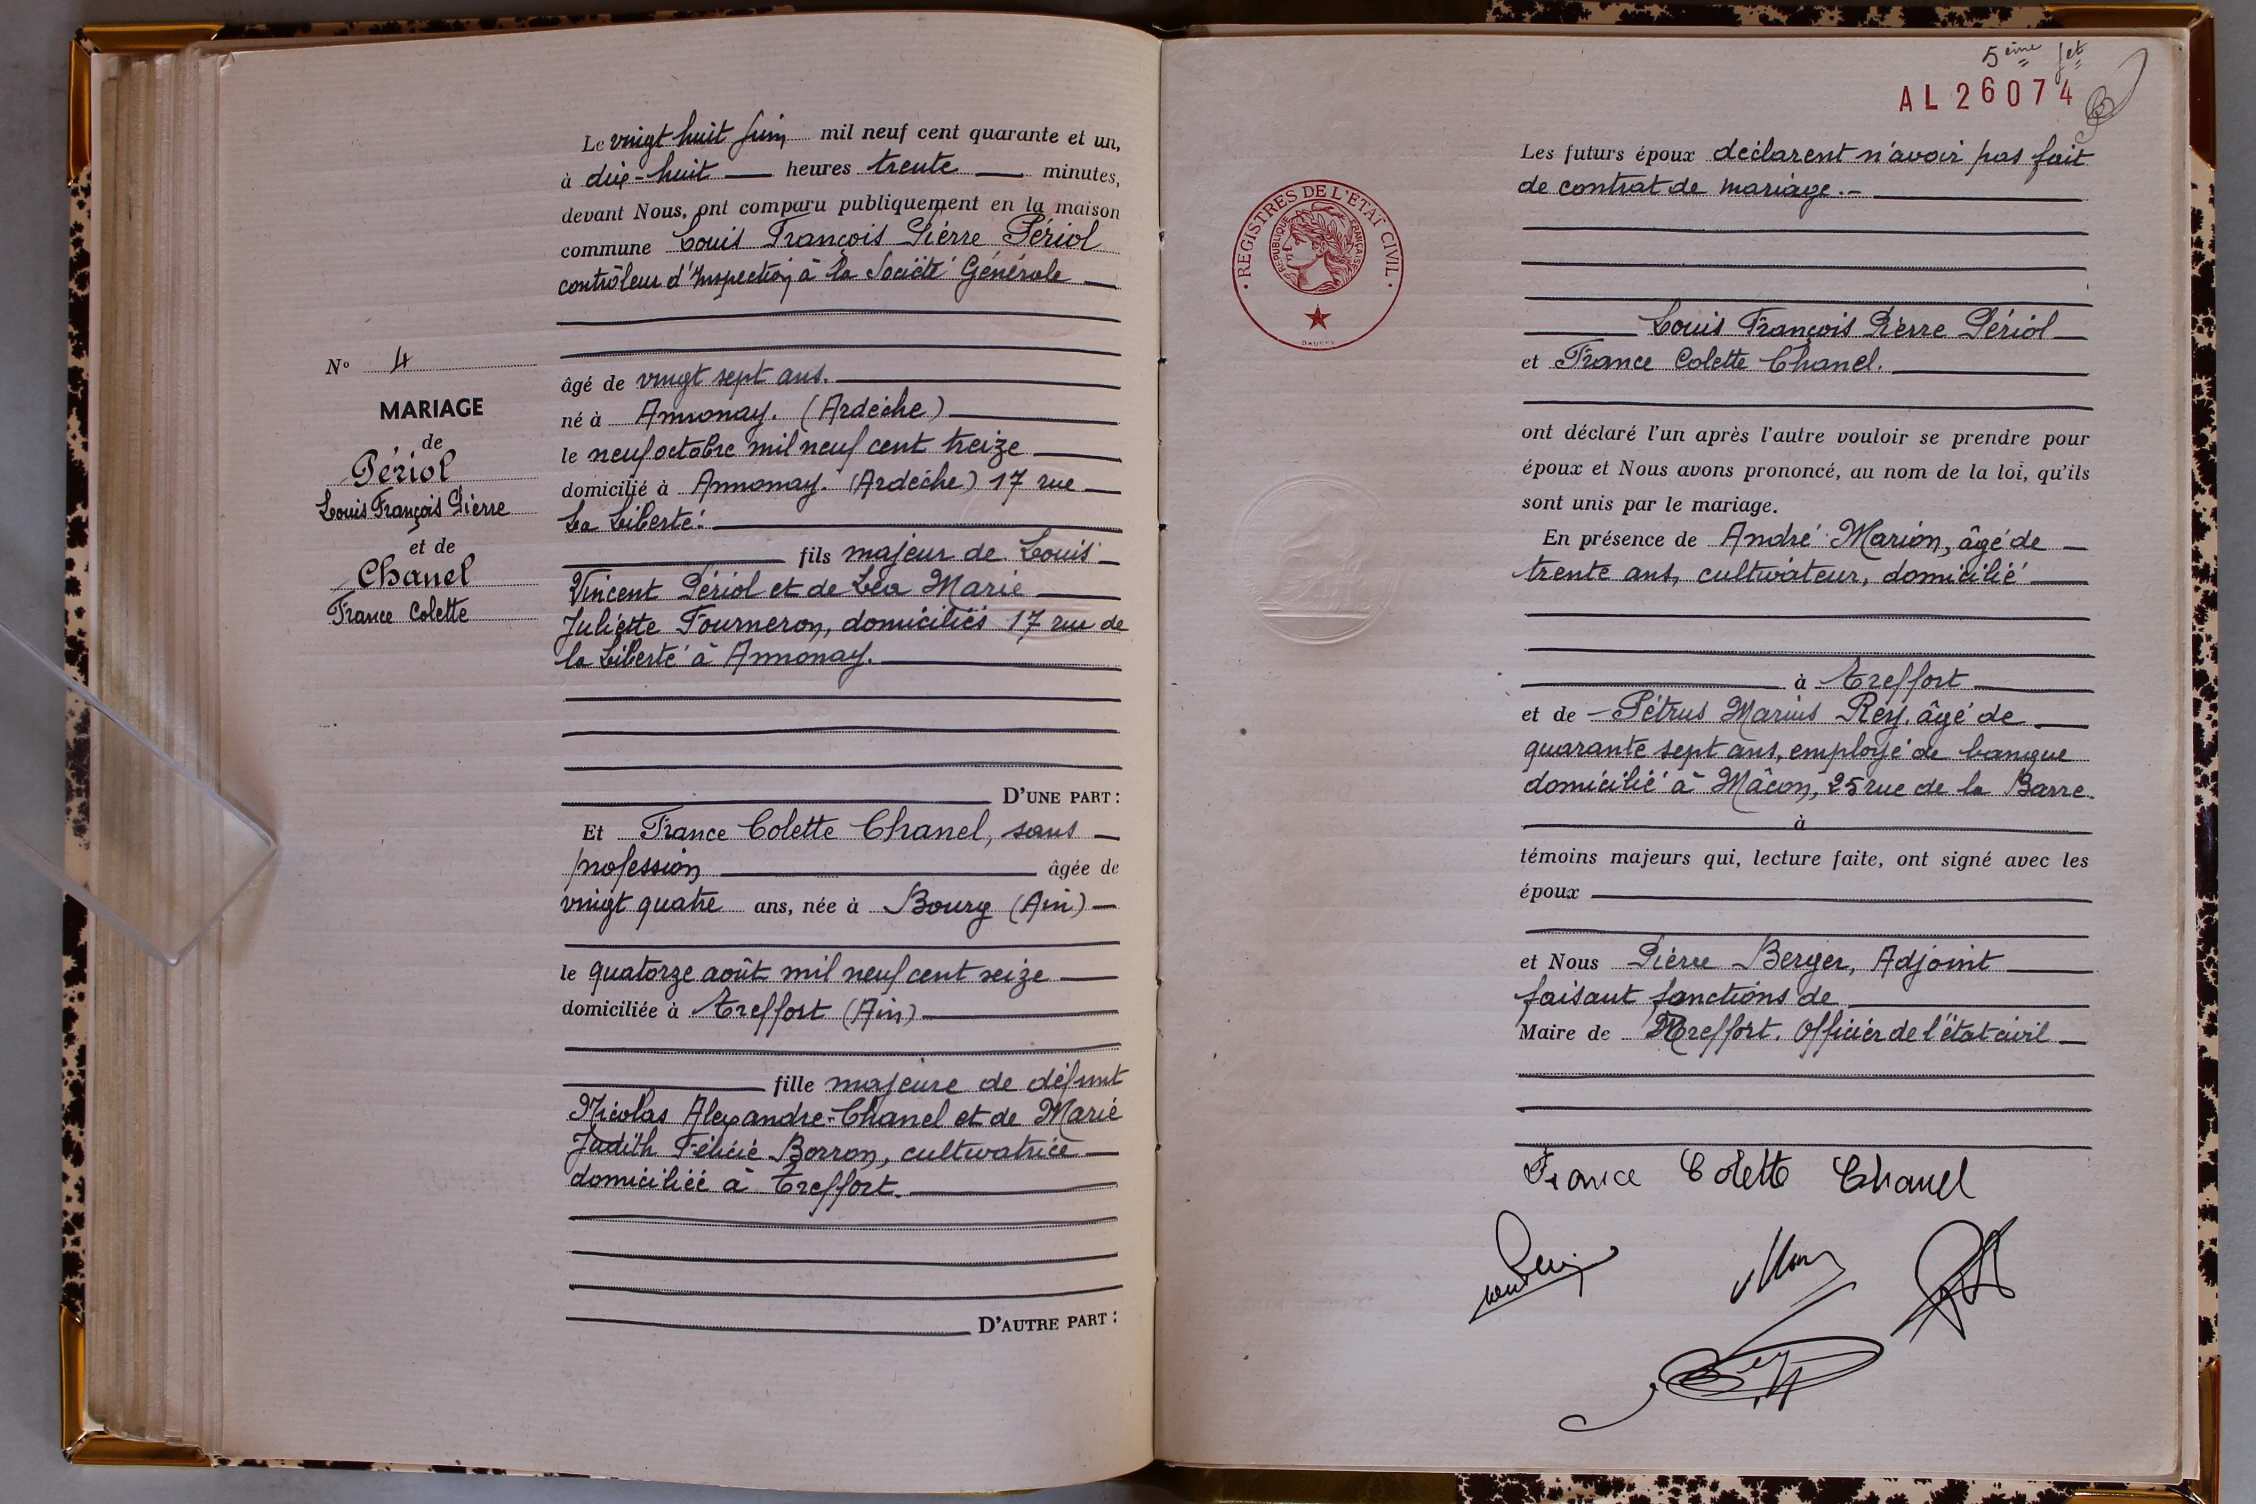 Le vingt huit Juin mil neuf cent quarante et un,
à dix-huit heures trente minutes,
devant Nous, ont comparu publiquement en la maison
commune Louis François Pierre Périol
contrôleur d'Inspection à la Société Générale
âgé de vingt sept ans.
né à Annonay. (Ardèche)
le neuf octobre mil neuf cent treize
domicilié à Annonay. (Ardèche) 17 rue
La Liberté.
fils majeur de Louis
Vincent Périol et de Léa Marie
Juliette Fourneron, domiciliés 17 rue de
la Liberté à Annonay.
D'UNE PART :
Et France Colette Chanel, sans
profession âgée de
vingt quatre ans, née à Bourg (Ain)
le quatorze août mil neuf cent seize
domiciliée à Treffort (Ain)
fille majeure de défunt
Nicolas Alexandre Chanel et de Marie
Judith Félicie Borron, cultivatrice
domiciliée à Treffort.
D'AUTRE PART :
N° 4
MARIAGE
de
Périol
Louis François Pierre
et de
Chanel
France Colette
5ème fet
AL26074
REGISTRES DE L'ÉTAT CIVIL
RÉPUBLIQUE FRANÇAISE
Les futurs époux déclarent n'avoir pas fait
de contrat de mariage.-
Louis François Pierre Périol
et France Colette Chanel.
ont déclaré l'un après l'autre vouloir se prendre pour
époux et Nous avons prononcé, au nom de la loi, qu'ils
sont unis par le mariage.
En présence de André Marion, âgé de
trente ans, cultivateur, domicilié
à Treffort
et de Pétrus Marius Rey, âgé de
quarante sept ans, employé de banque
domicilié à Mâcon, 25 rue de la Barre.
à
témoins majeurs qui, lecture faite, ont signé avec les
époux
et Nous Pierre Berger, Adjoint
faisant fonctions de
Maire de Treffort. Officier de l'état civil
France Colette Chanel